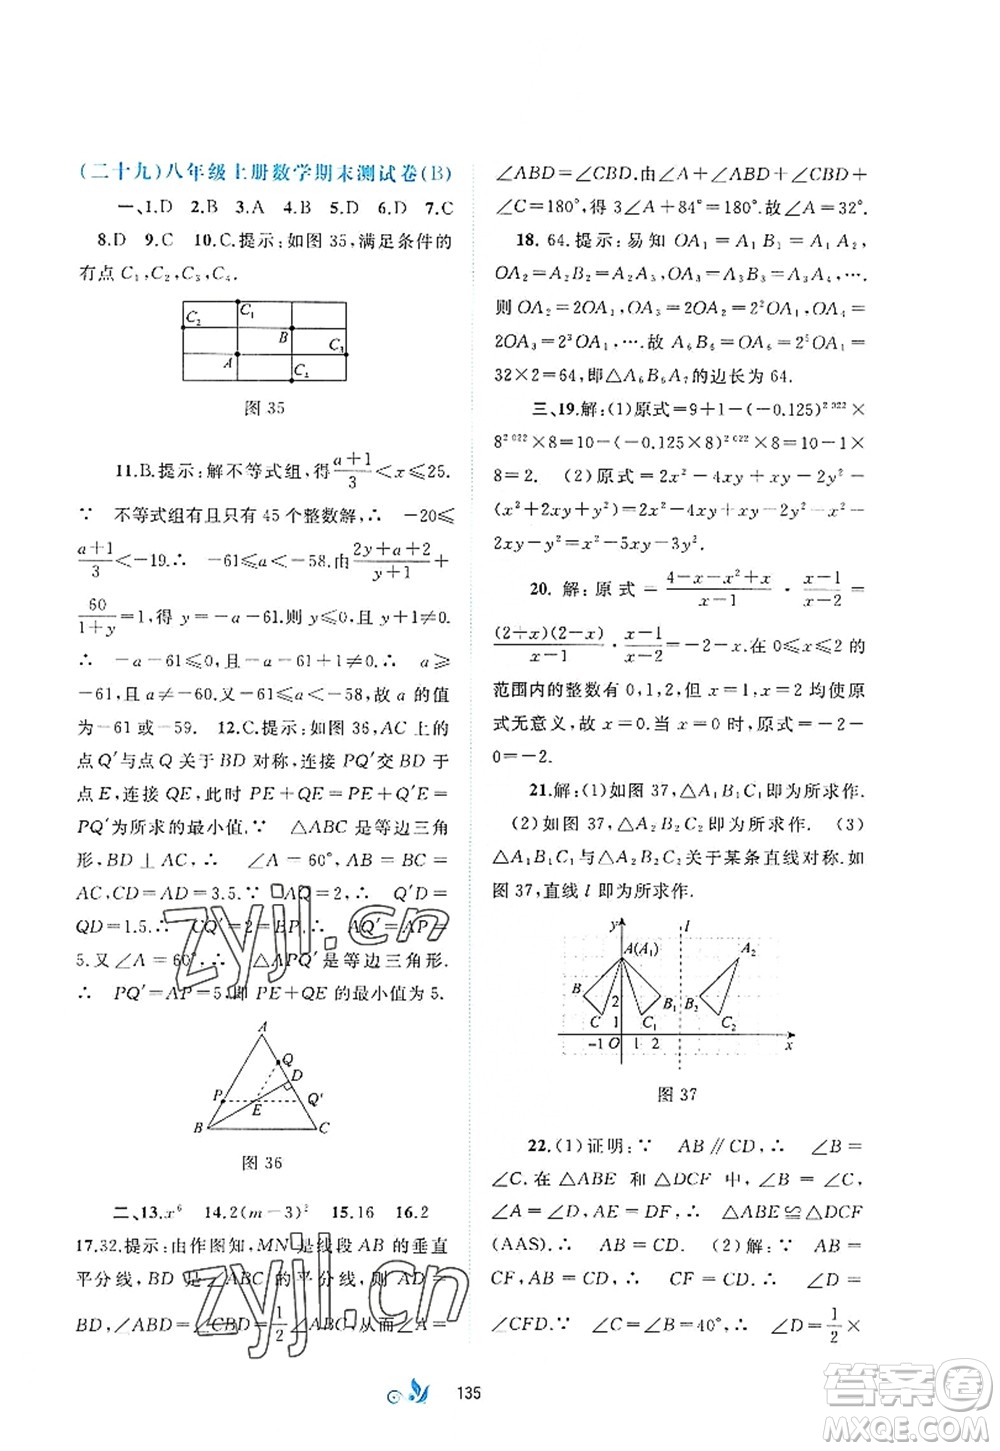 (二十九)八年级上册数学期末测试卷(B)
一、1.D 2.B 3.A 4.B 5.D 6.D 7.C
8.D 9.C 10.C.提示:如图 35,满足条件的
有点 C₁,C₂,C₃,C₄.
C₂ C₁ B A C₃ C₄
图 35
11.B.提示:解不等式组,得(a+1)/3<x≤25.
∵ 不等式组有且只有 45 个整数解,∴ -20≤
(a+1)/3<-19.∴ -61≤a<-58.由(2y+a+2)/(y+1)+
60/(1+y)=1,得 y=-a-61 且 y+1≠0.
∴ -a-61≤0,且 -a-61+1≠0.∴ a≥
-61,且 a≠-60.又 -61≤a<-58,故 a 的值
为-61 或-59. 12.C.提示:如图 36,AC 上的
点 Q′与点 Q 关于 BD 对称,连接 PQ′交 BD 于
点 E,连接 QE,此时 PE+QE=PE+EQ′=
PQ′为所求的最小值.∵ △ABC 是等边三角
形,BD⊥AC,∴ ∠A=60°,AB=BC=
AC,CD=AD=3.5.∵ AQ=2,∴ Q′D=
QD=1.5.∴ CQ′=2=BP.∴ AQ′=AP=
5.又∠A=60°,∴ △APQ′是等边三角形.
∴ PQ′=AP=5.即 PE+QE 的最小值为 5.
A Q D P E Q′ B C
图 36
二、13.x⁶ 14.2(m-3)² 15.16 16.2
17.32.提示:由作图知,MN 是线段 AB 的垂直
平分线,BD 是∠ABC 的平分线,则 AD=
BD,∠ABD=∠CBD=1/2∠ABC,从而∠A=
∠ABD=∠CBD=∠C.由∠A+∠ABD+∠CBD+
∠C=180°,得 3∠A+84°=180°.故∠A=32°.
18. 64.提示:易知 OA₁=A₁B₁=A₁A₂,
OA₂=A₂B₂=A₂A₃,OA₃=A₃B₃=A₃A₄,….
则 OA₂=2OA₁,OA₃=2OA₂=2²OA₁,OA₄=
2OA₃=2³OA₁,….故 A₆B₆=OA₆=2⁵OA₁=
32×2=64,即△A₆B₆A₇的边长为 64.
三、19.解:(1)原式=9+1-(-0.125)²⁰²²×
8²⁰²²×8=10-(-0.125×8)²⁰²²×8=10-1×
8=2. (2)原式=2x²-4xy+xy-2y²-
(x²+2xy+y²)=2x²-4xy+xy-2y²-x²-
2xy-y²=x²-5xy-3y².
20. 解:原式=(4-x-x²+x)/(x-1)·(x-1)/(x-2)=
(2+x)(2-x)/(x-1)·(x-1)/(x-2)=-2-x.在 0≤x≤2 的
范围内的整数有 0,1,2,但 x=1,x=2 均使原
式无意义,故 x=0.当 x=0 时,原式=-2-
0=-2.
21.解:(1)如图 37,△A₁B₁C₁即为所求作.
(2)如图 37,△A₂B₂C₂即为所求作. (3)
△A₁B₁C₁与△A₂B₂C₂关于某条直线对称.如
图 37,直线 l 即为所求作.
y l A(A₁) A₂ B 2 B₁ B₂ C 1 C₁ C₂ -1 O 1 2 x
图 37
22.(1)证明:∵ AB∥CD,∴ ∠B=
∠C.在△ABE 与△DCF 中,∠B=∠C,
∠A=∠D,AE=DF,∴ △ABE≌△DCF
(AAS). (2)解:∵ △ABE≌△DCF,∴ AB=
CF,AB=CD.∴ CD=CF.∴ ∠D=
∠CFD.∵ ∠C=∠B=40°,∴ ∠D=1/2×
135
zyjl.cn
zyjl.cn
答案圈
MXQE.COM